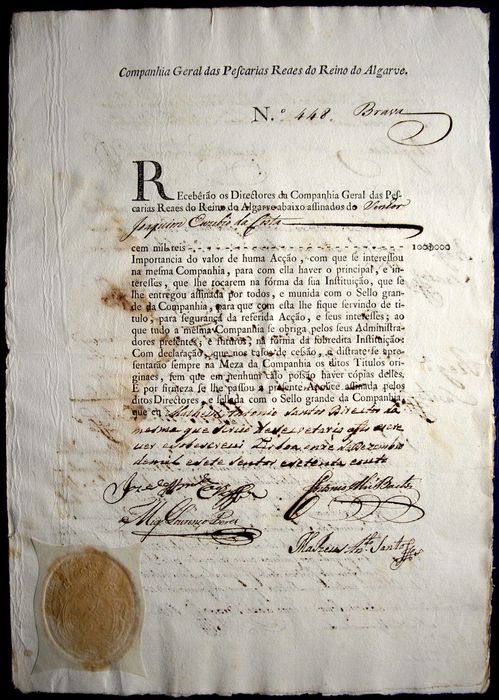 Companhia Geral das Peſcarias Reaes do Reino do Algarve.
N.º 448. Brava
REceberão os Directores da Companhia Geral das Peſ-
carias Reaes do Reino do Algarve abaixo aſſinados do
Joaquim Euzebio da Costa
cem mil reis 100$000
Importancia do valor de huma Acção, com que ſe intereſſou
na meſma Companhia, para com ella haver o principal, e in-
tereſſes, que lhe tocarem na fórma da ſua Inſtituição, que ſe
lhe entregou aſſinada por todos, e munida com o Sello gran-
de da Companhia, para que com eſta lhe fique ſervindo de ti-
tulo, para ſegurança da referida Acção, e ſeus intereſſes; ao
que tudo a meſma Companhia ſe obriga pelos ſeus Adminiſtra-
dores preſentes, e futuros, na fórma da ſobredita Inſtituição:
Com declaração, que nos caſos de ceſsão, e diſtrate ſe apre-
ſentarão ſempre na Meza da Companhia os ditos Titulos ori-
ginaes, ſem que em nenhum caſo poſsão haver cópias delles.
E por firmeza ſe lhe paſſou a preſente Apolice aſſinada pelos
ditos Directores, e ſellada com o Sello grande da Companhia
que eu Matheus Antonio Santos Director da
mesma que sirvo de secretario a fiz escre
ver e sobescrevi Lisboa onze de Dezembro
de mil e sete sentos e setenta e outo
Matheus Ant.º Santos